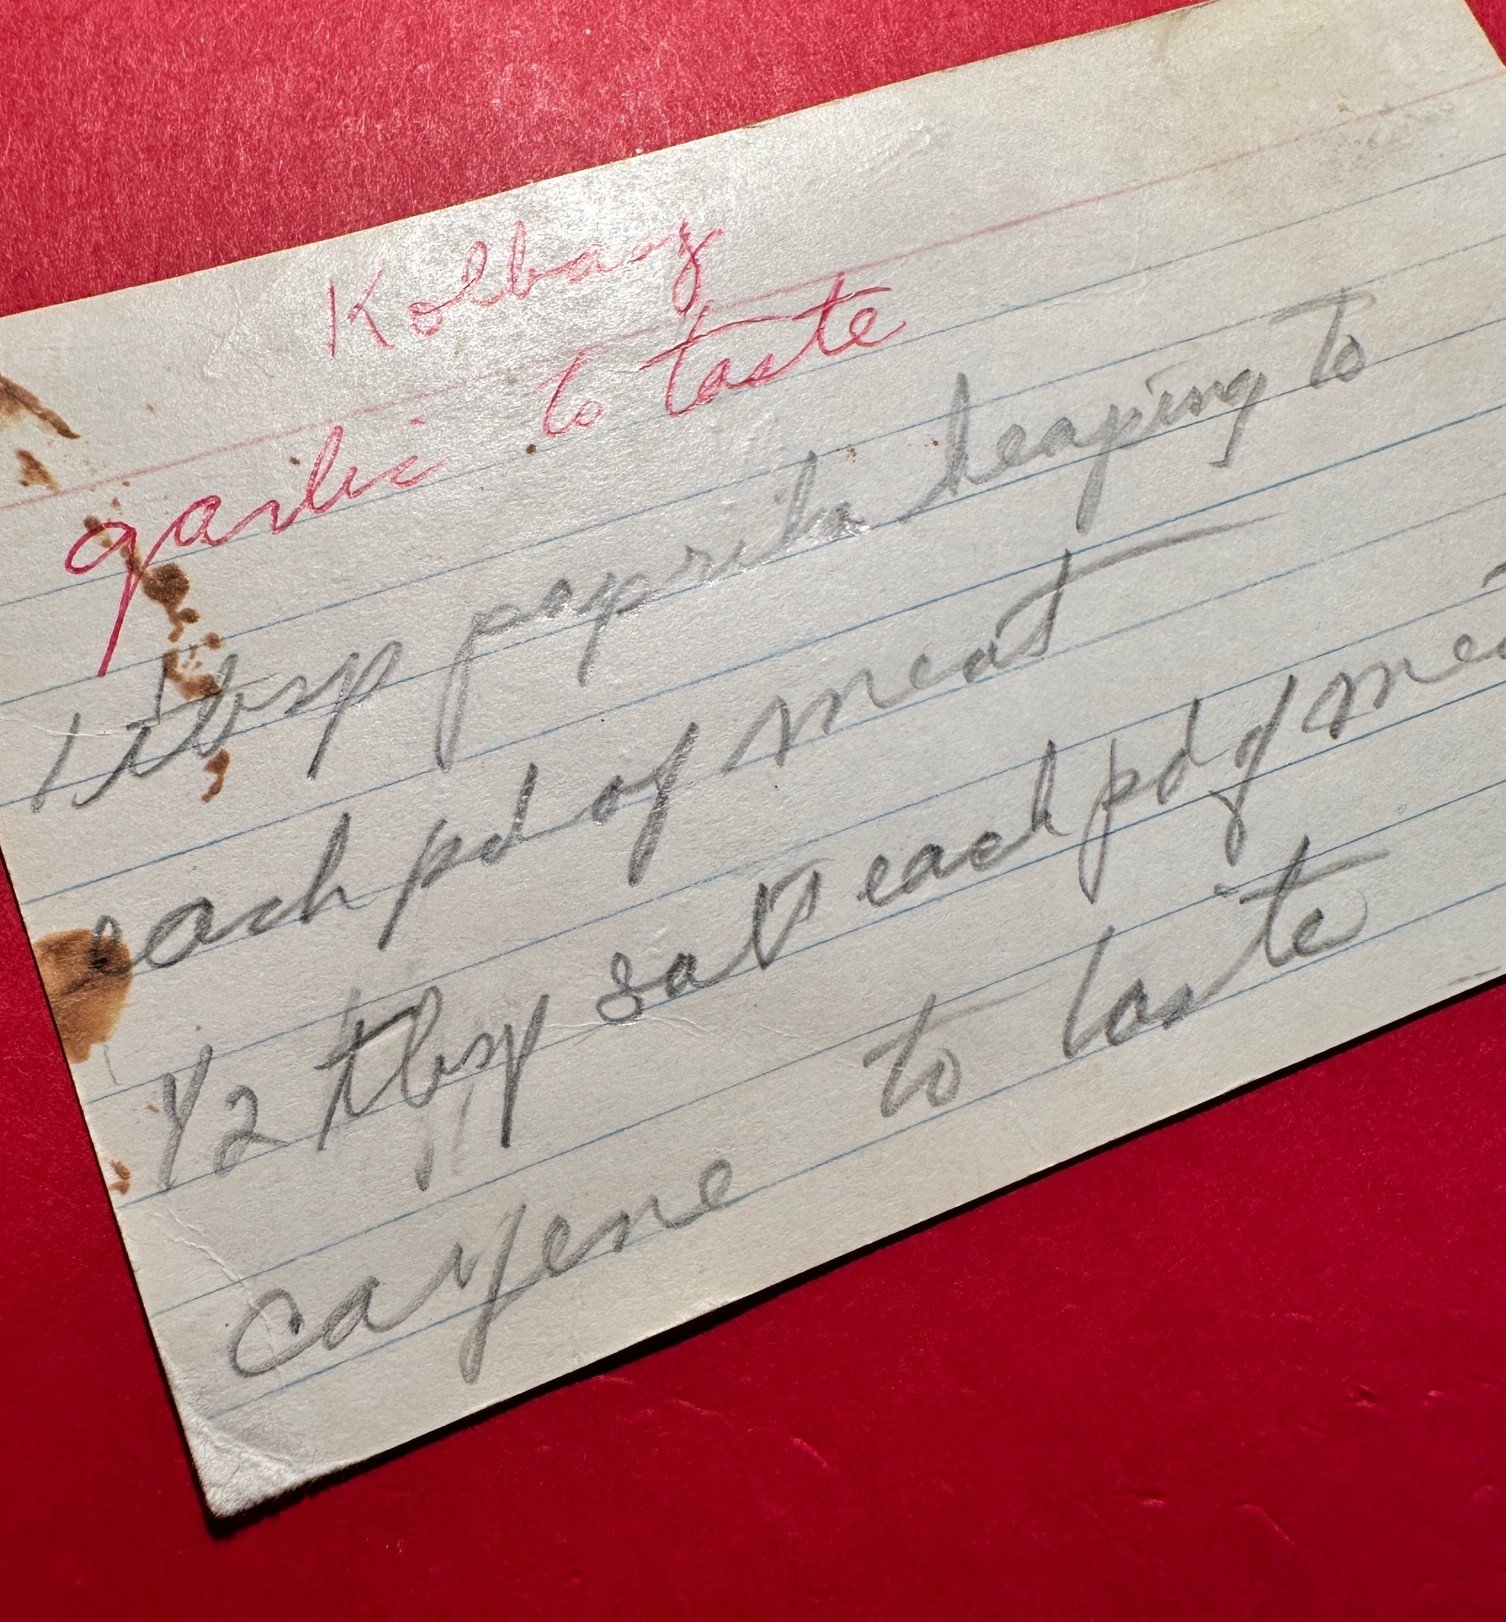 Kolbaz
garlic to taste
1 tbsp paprika heaping to
each pd of meat
1/2 tbsp salt each pd of mea
cayene to taste